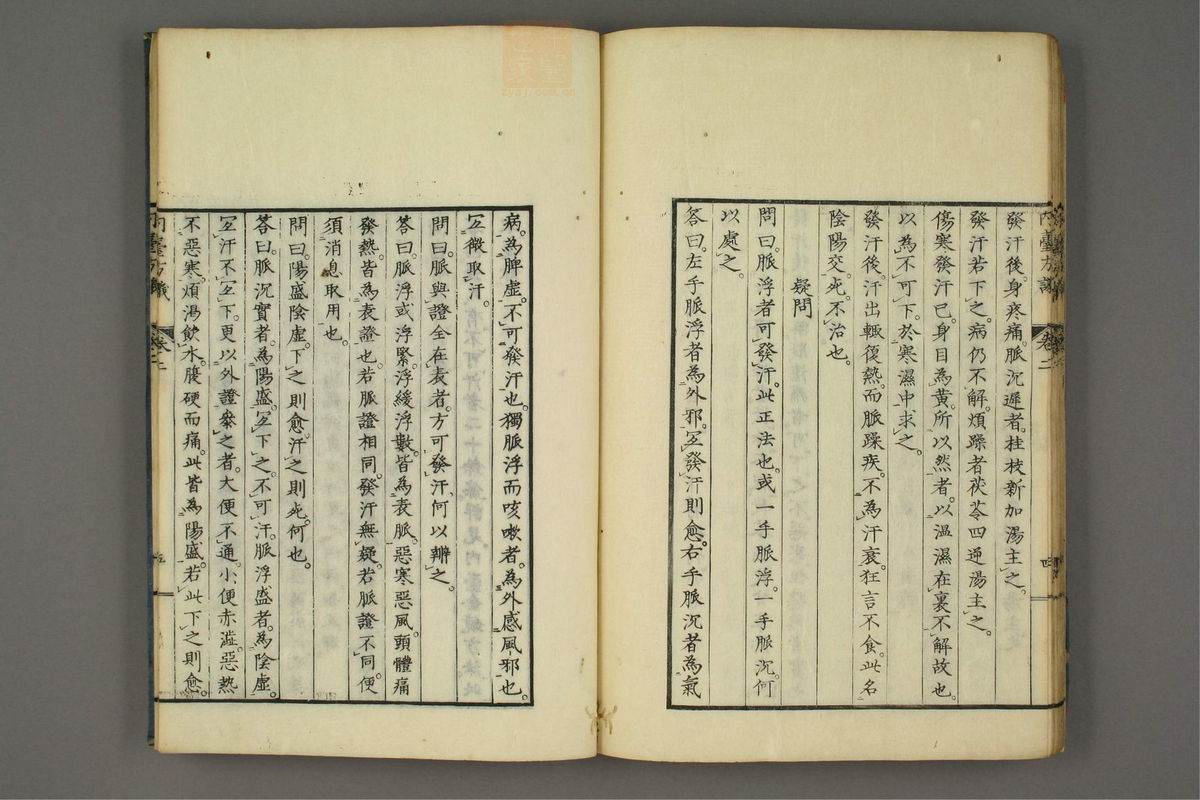 發汗後。身疼痛。脈沉遲者。桂枝新加湯主之。
發汗若下之。病仍不解。煩躁者茯苓四逆湯主之。
傷寒發汗已。身目為黃。所以然者。以溫濕在裏不解故也。
以為不可下。於寒濕中求之。
發汗後。汗出輒復熱。而脈躁疾。不為汗衰。狂言不食。此名
陰陽交。死不治也。
疑問
問曰。脈浮者可發汗。此正法也。或一手脈浮。一手脈沉。何
以處之。
答曰。左手脈浮者為外邪。冝發汗則愈。右手脈沉者為氣
病。為脾虛。不可發汗也。獨脈浮而咳嗽者。為外感風邪也。
冝微取汗。
問曰。脈與證全在表者。方可發汗。何以辨之。
答曰。脈浮或浮緊。浮緩浮數。皆為表脈。惡寒惡風。頭體痛
發熱。皆為表證也。若脈證相同。發汗無疑。若脈證不同。便
須消息取用也。
問曰。陽盛陰虛。下之則愈。汗之則死。何也。
答曰。脈沉實者。為陽盛。冝下之。不可汗。脈浮盛者。為陰虛。
冝汗不冝下。更以外證參之者。大便不通。小便赤澁。惡熱
不惡寒。煩渴飲水。腹硬而痛。此皆為陽盛。若此下之則愈。
內臺方議
卷二
四
五
zysj.com.cn